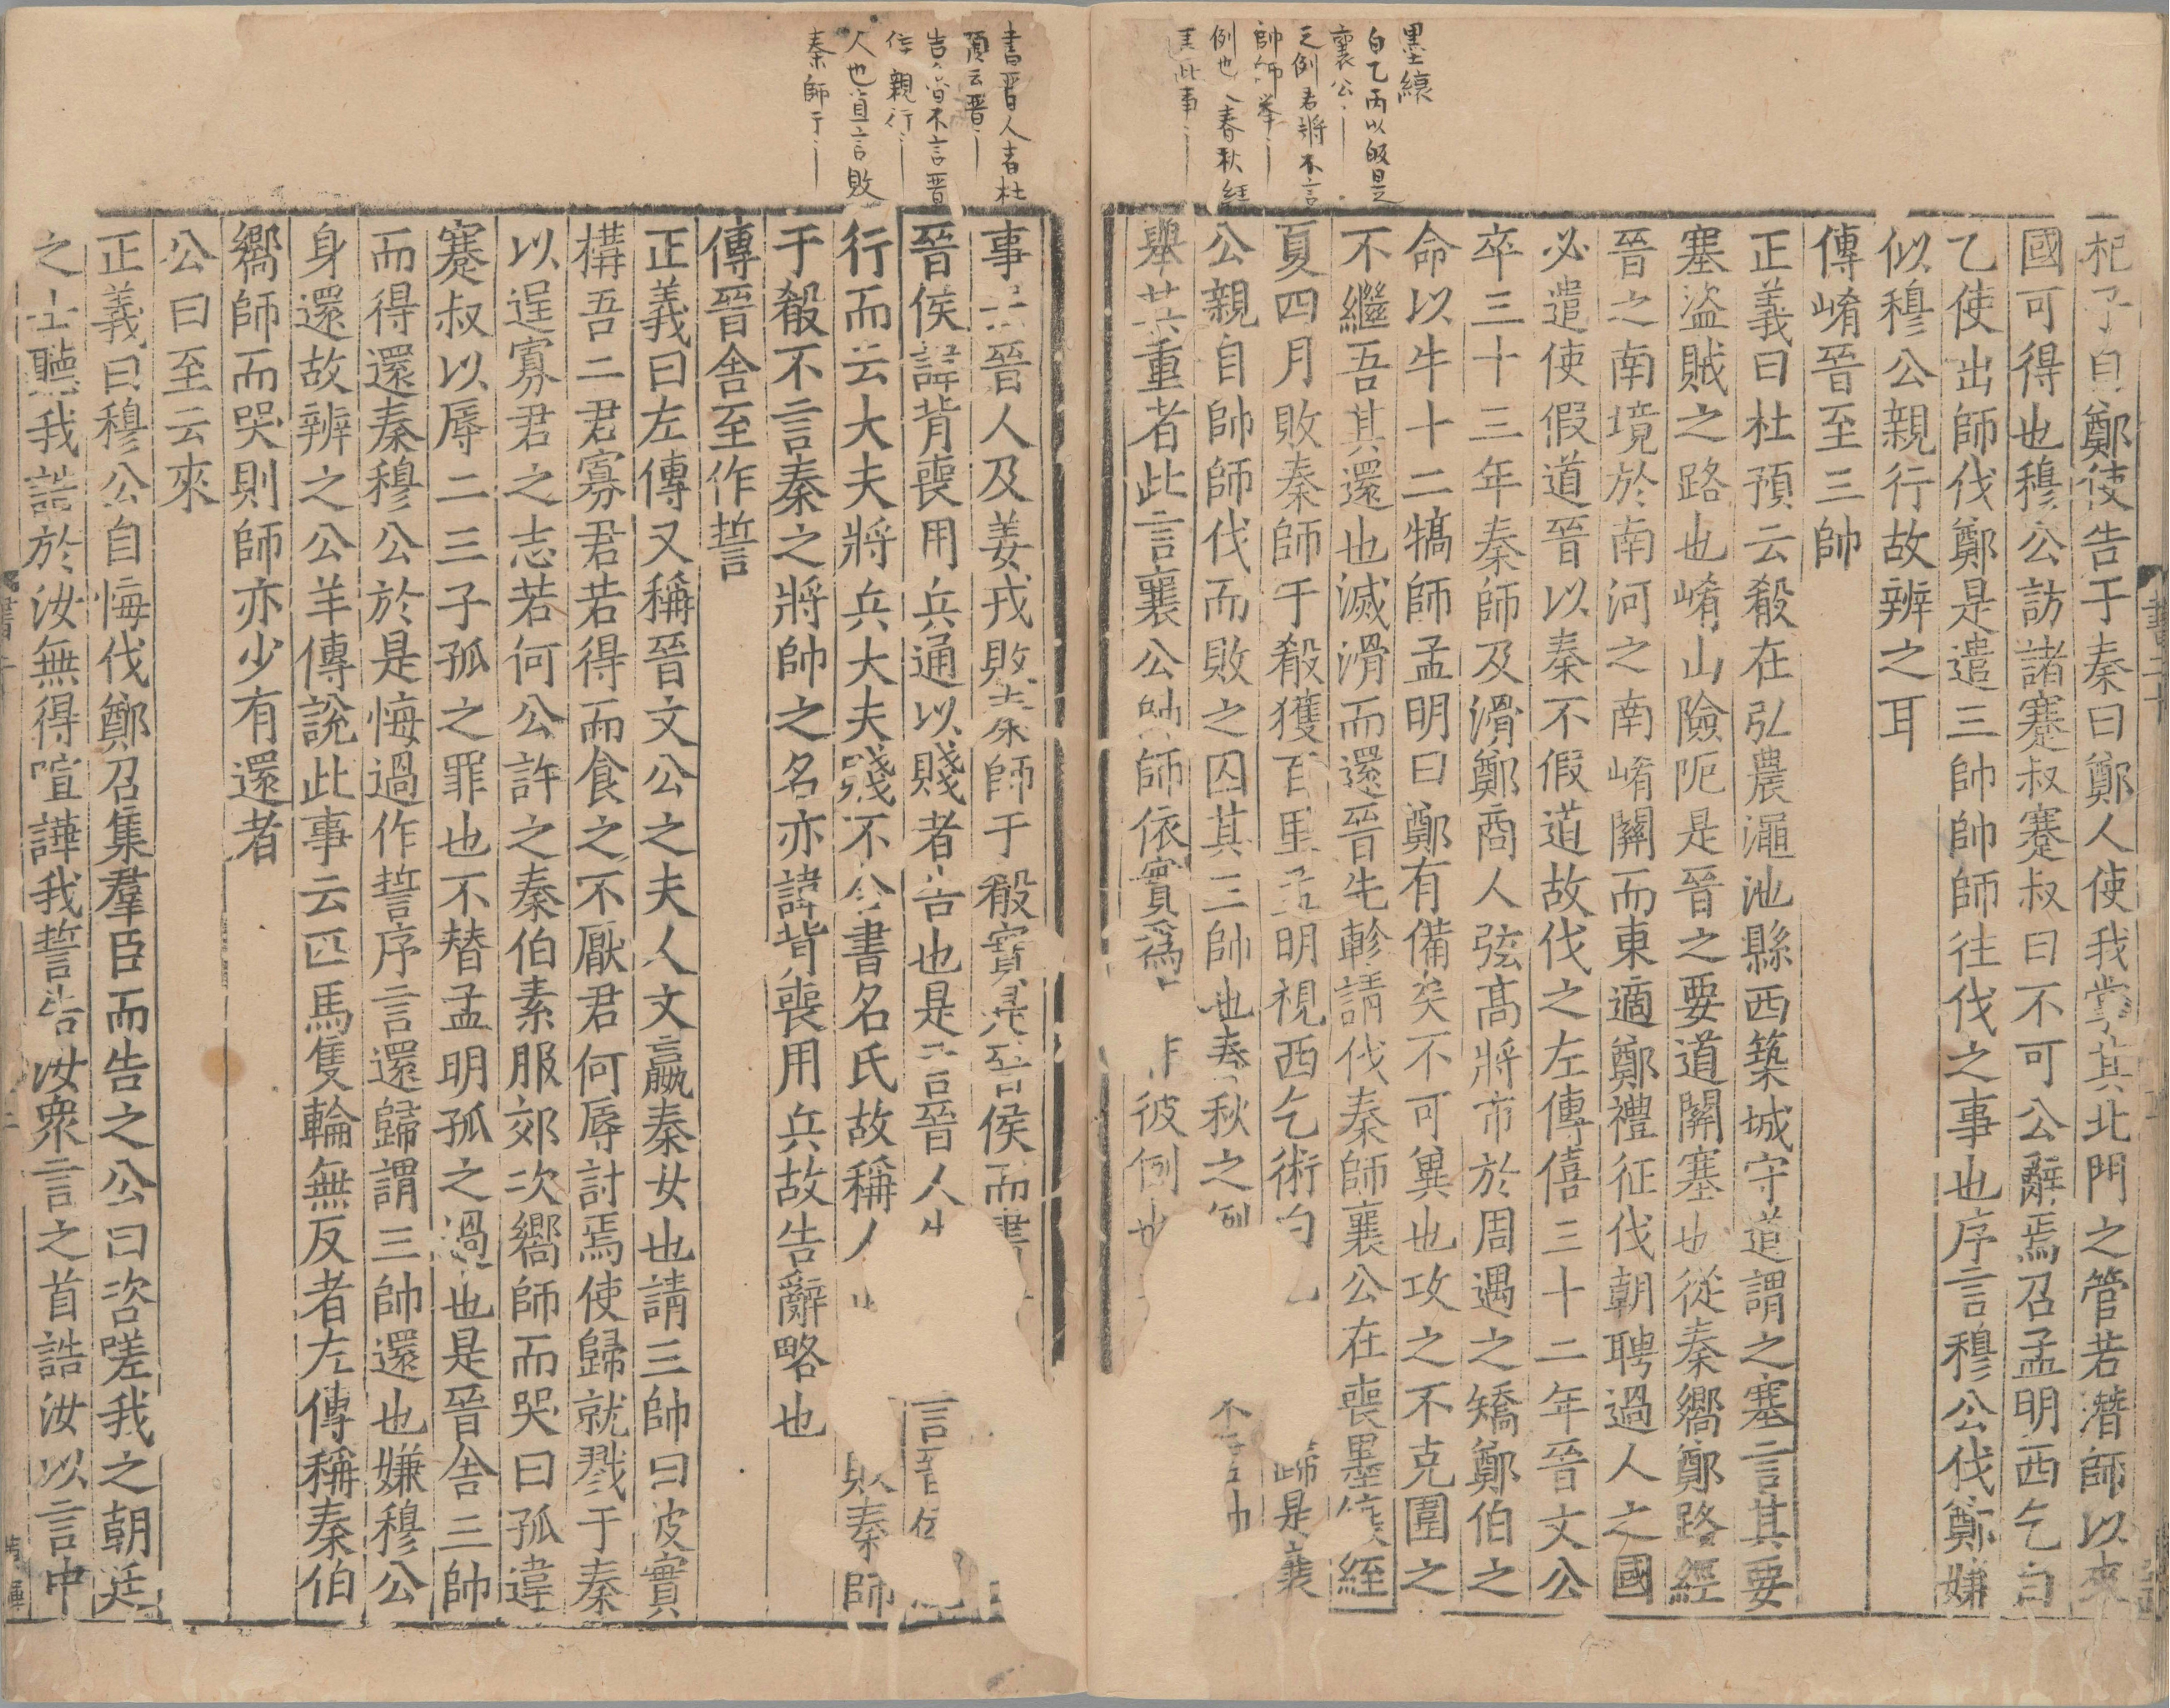 墨縗
白乙丙以敗是
襄公
之例君將不言
帥師舉
例也 春秋經
此事
杞子自鄭使告于秦曰鄭人使我掌其北門之管若潛師以來
國可得也穆公訪諸蹇叔蹇叔曰不可公辭焉召孟明西乞白
乙使出師伐鄭是遣三帥帥師往伐之事也序言穆公伐鄭嫌
似穆公親行故辨之耳
傳崤晉至三帥
正義曰杜預云殽在弘農澠池縣西築城守道謂之塞言其要
塞盜賊之路也崤山險阨是晉之要道關塞也從秦嚮鄭路經
晉之南境於南河之南崤關而東適鄭禮征伐朝聘過人之國
必遣使假道晉以秦不假道故伐之左傳僖三十二年晉文公
卒三十三年秦師及滑鄭商人弦高將市於周遇之矯鄭伯之
命以牛十二犒師孟明曰鄭有備矣不可冀也攻之不克圍之
不繼吾其還也滅滑而還晉先軫請伐秦師襄公在喪墨縗絰
夏四月敗秦師于殽獲百里孟明視西乞術白 歸是襄
公親自帥師伐而敗之囚其三帥也春秋之例 不言帥
舉其重者此言襄公帥師依實爲 彼例也
書晉人者杜
預云晉
言 不言晉
侯親行
人也直言敗
秦師于
事云晉人及姜戎敗秦師于殽實是晉侯而書
晉侯諱背喪用兵通以賤者告也是言晉人 言晉侯
行而云大夫將兵大夫賤不合書名氏故稱人 敗秦師
于殽不言秦之將帥之名亦諱背喪用兵故告辭略也
傳晉舍至作誓
正義曰左傳又稱晉文公之夫人文嬴秦女也請三帥曰彼實
構吾二君寡君若得而食之不厭君何辱討焉使歸就戮于秦
以逞寡君之志若何公許之秦伯素服郊次嚮師而哭曰孤違
蹇叔以辱二三子孤之罪也不替孟明孤之過也是晉舍三帥
而得還秦穆公於是悔過作誓序言還歸謂三帥還也嫌穆公
身還故辨之公羊傳說此事云匹馬隻輪無反者左傳稱秦伯
嚮師而哭則師亦少有還者
公曰至云來
正義曰穆公自悔伐鄭召集羣臣而告之公曰咨嗟我之朝廷
之士聽我誥於汝無得喧譁我誓告汝眾言之首誥汝以言中